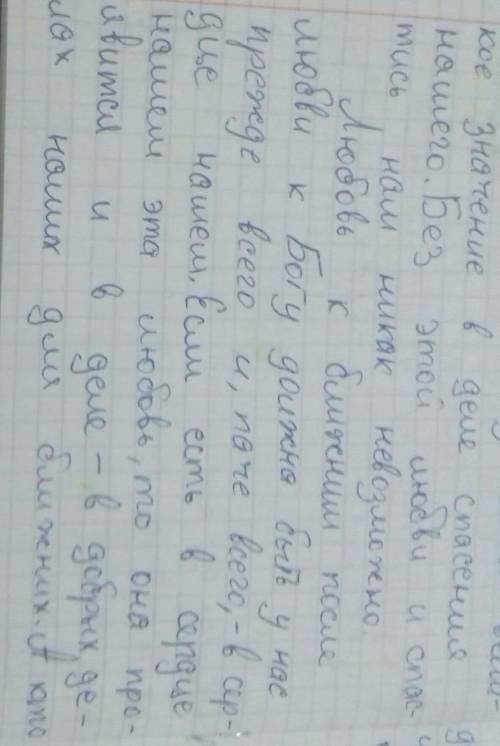 кое значение в деле спасения
нашего. Без этой любви и спас-
тись нам никак невозможно.
Любовь к ближним после
любви к Богу должна быть у нас
прежде всего и, паче всего, - в сер-
дце нашем. Если есть в сердце
нашем эта любовь, то она про-
явится и в деле - в добрых де-
лах наших для ближних. А кто